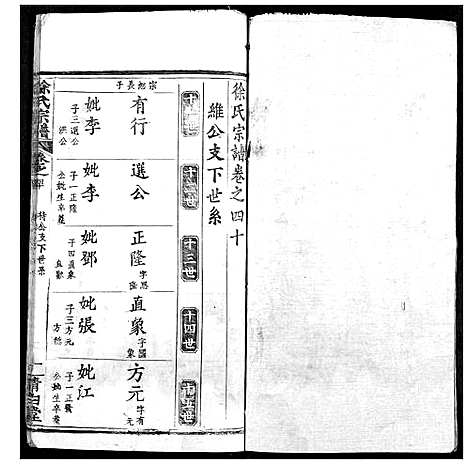 徐氏宗譜卷之四十
維公支下世系
十一世
十二世
十三世
十四世
十五世
宗起長子
有行
妣李
子三選公
洪公
選公
妣李
子一正隆
公妣生卒葬
正隆
字思隆
妣鄧
子四直象
直勳
直象
字國象
妣張
子三方元
方德
方元
字有元
妣江
子一正賢
公妣生卒葬
徐氏宗譜
卷之四十
特公支下世系
清白堂